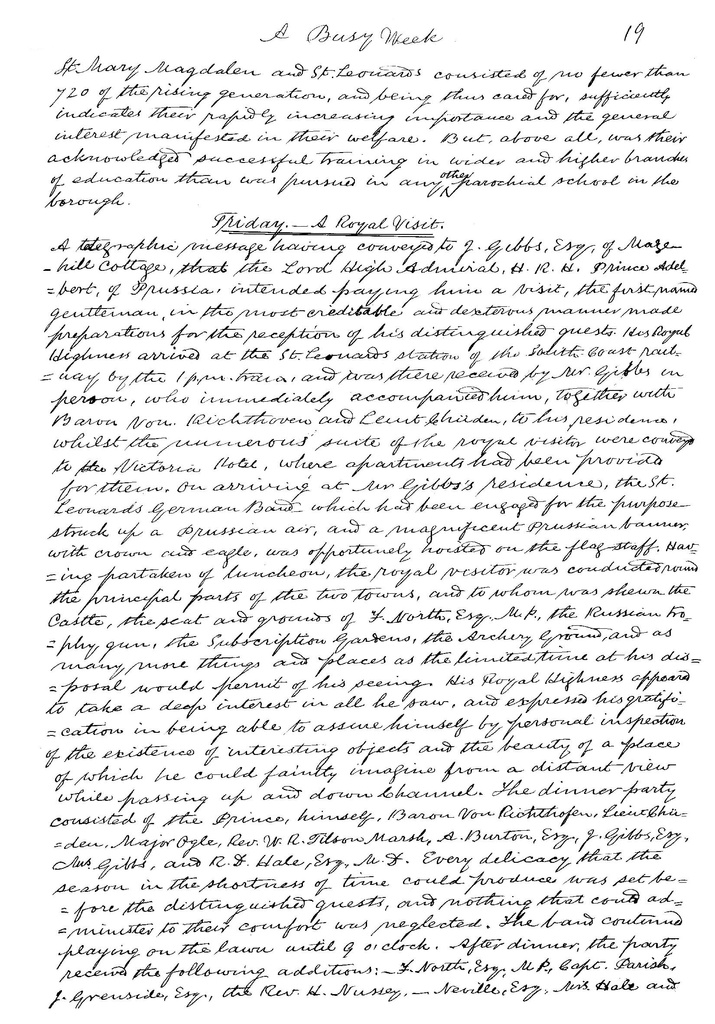 A Busy Week 19
St. Mary Magdalen and St. Leonards consisted of no fewer than
720 of the rising generation, and being thus cared for, sufficiently
indicates their rapidly increasing importance and the general
interest manifested in their welfare. But, above all, was their
acknowledged successful training in wider and higher branches
of education than was pursued in any other parochial school in the
borough.
Friday. — A Royal Visit.
A telegraphic message having conveyed to J. Gibbs, Esq, of Maze-
-hill Cottage, that the Lord High Admiral, H. R. H. Prince Adel-
=bert, of Prussia, intended paying him a visit, the first named
gentleman, in the most creditable and dexterous manner made
preparations for the reception of his distinguished guests. His Royal
Highness arrived at the St. Leonards station of the South Coast rail-
=way by the 1 p.m. train, and was there received by Mr. Gibbs in
person, who immediately accompanied him, together with
Baron Von. Richthoven and Leiut Childen, to his residence,
whilst the numerous suite of the royal visitor were conveyed
to the Victoria Hotel, where apartments had been provided
for them. On arriving at Mr Gibbs's residence, the St.
Leonards German Band which had been engaged for the purpose
struck up a Prussian air, and a magnificent Prussian banner,
with crown and eagle, was opportunely hoisted on the flag-staff. Hav-
=ing partaken of luncheon, the royal visitor was conducted round
the principal parts of the two towns, and to whom was shewn the
Castle, the seat and grounds of F. North, Esq, M.P., the Russian tro-
=phy gun, the Subscription Gardens, the Archery Ground, and as
many more things and places as the limited time at his dis=
=posal would permit of his seeing. His Royal Highness appeared
to take a deep interest in all he saw, and expressed his gratifi-
=cation in being able to assure himself by personal inspection
of the existence of interesting objects and the beauty of a place
of which he could faintly imagine from a distant view
while passing up and down Channel. The dinner party
consisted of the Prince, himself, Baron Von Richthofen, Lieut Chil-
=den, Major Ogle, Rev. W. R. Tilson Marsh, A. Burton, Esq, J. Gibbs, Esq,
Mrs Gibbs, and R. D. Hale, Esq, M. D. Every delicacy that the
season in the shortness of time could produce was set be-
=fore the distinguished guests, and nothing that could ad=
=minister to their comfort was neglected. The band contenued
playing on the lawn until 9 o'clock. After dinner, the party
receivd the following additions: — F. North, Esq, M P., Capt. Parish,
J. Grenside, Esq., the Rev. H. Nussey, — Neville, Esq, Mrs Hale and